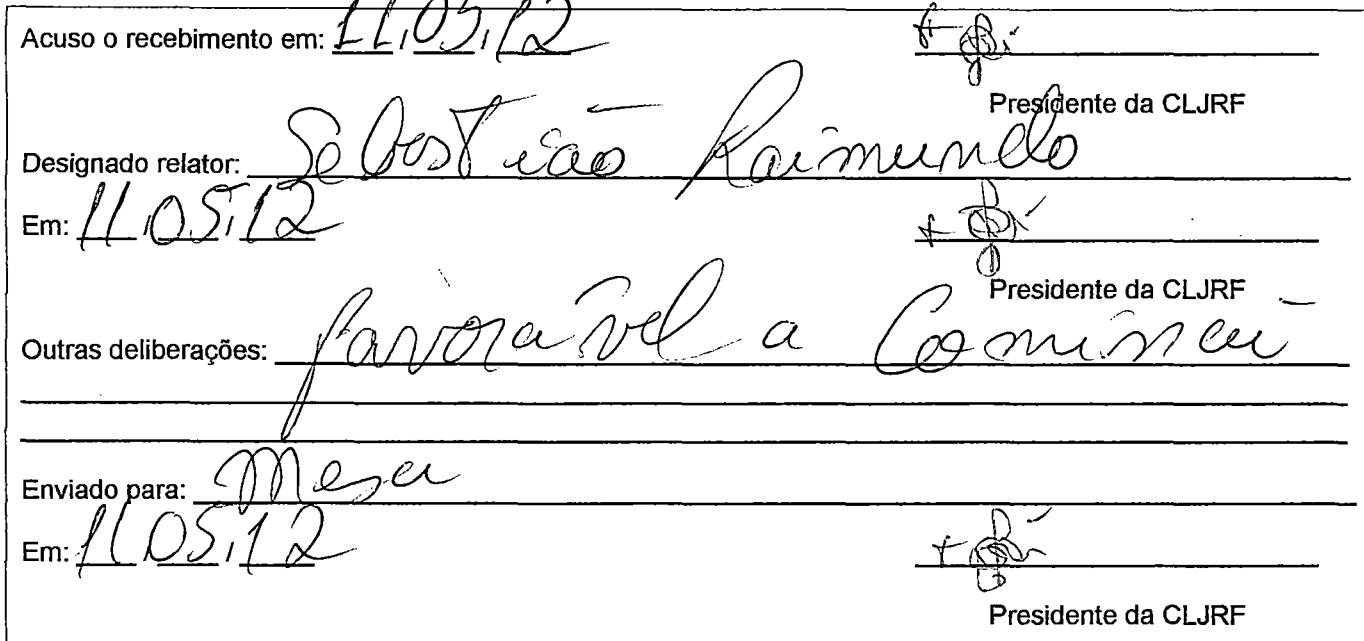 Acuso o recebimento em: 11,05,12
Presidente da CLJRF
Designado relator: Sebastião Raimundo
Em: 11,05,12
Presidente da CLJRF
Outras deliberações: favorável a
Enviado para: Mesa
Em: 11,05,12
Presidente da CLJRF